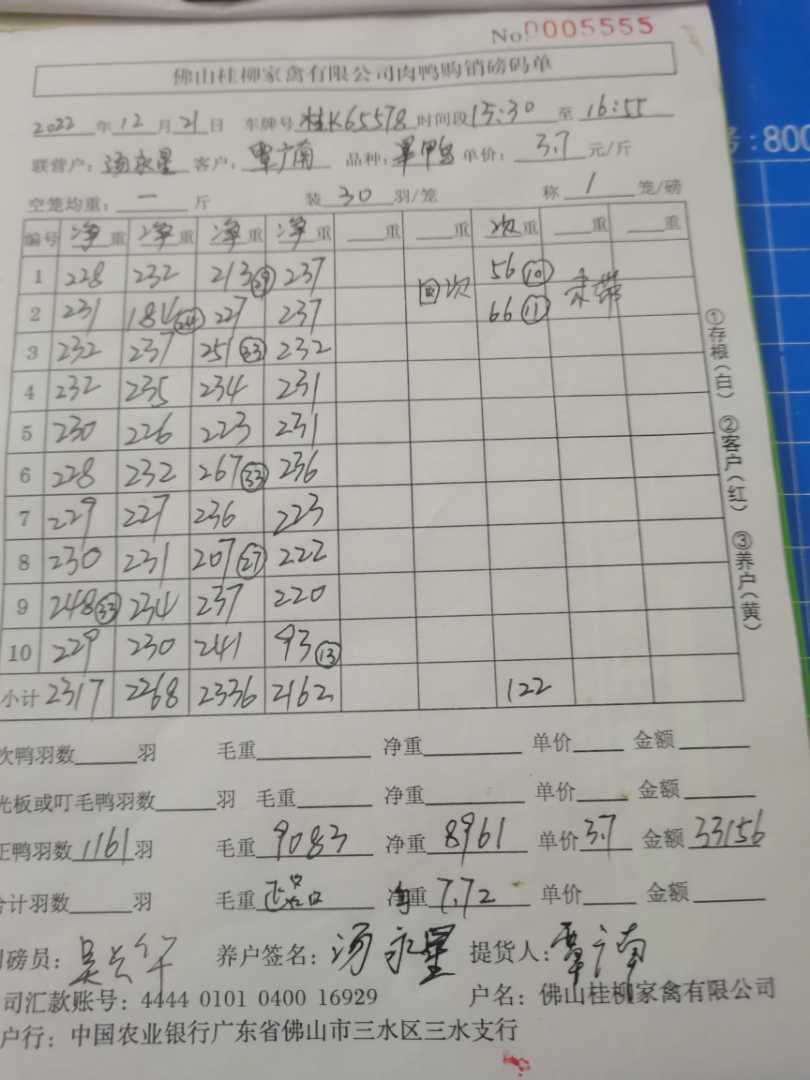 No 0005555
佛山桂柳家禽有限公司肉鸭购销磅码单
2022 年 12 月 21 日 车牌号 桂K65578 时间段 15:30 至 16:55
联营户: 汤永星 客户: 覃广南 品种: 单价: 3.7 元/斤
空笼均重: 一 斤 装 30 羽/笼 称 1 笼/磅
编号 净重 净重 净重 净重 重 重 次重 重 重
1 228 232 213 29 237 回次 56 10 未带
2 231 184 24 227 237 66 11
3 232 237 251 33 232
4 232 235 234 231
5 230 226 223 231
6 228 232 267 33 236
7 229 227 236 223
8 230 231 207 27 222
9 248 33 234 237 220
10 229 230 241 93 13
小计 2317 2268 2336 2162 122
①存根(白) ②客户(红) ③养户(黄)
次鸭羽数 羽 毛重 净重 单价 金额
光板或叮毛鸭羽数 羽 毛重 净重 单价 金额
正鸭羽数 1161 羽 毛重 9083 净重 8961 单价 3.7 金额 33156
合计羽数 羽 毛重 净重 7.72 单价 金额
磅员: 养户签名: 汤永星 提货人: 覃广南
司汇款账号: 4444 0101 0400 16929 户名: 佛山桂柳家禽有限公司
户行: 中国农业银行广东省佛山市三水区三水支行
号:800